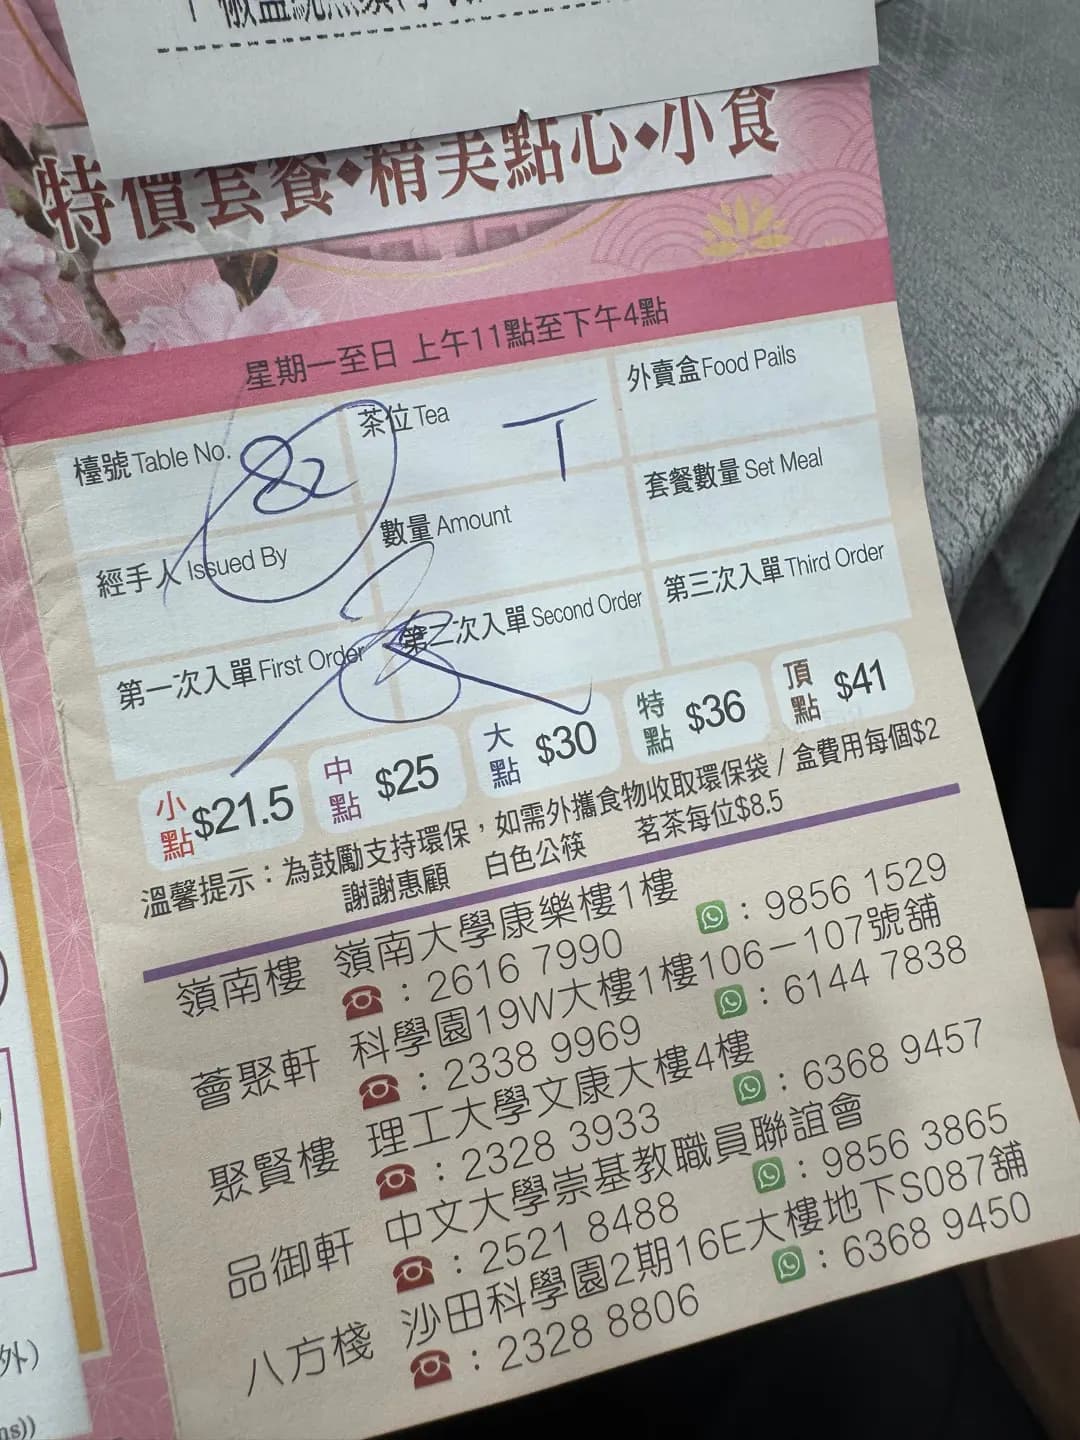 特價套餐◆精美點心◆小食
星期一至日 上午11點至下午4點
檯號 Table No. 82
茶位 Tea T
外賣盒 Food Pails
經手人 Issued By
數量 Amount
套餐數量 Set Meal
第一次入單 First Order
第二次入單 Second Order
第三次入單 Third Order
小點 $21.5 中點 $25 大點 $30 特點 $36 頂點 $41
溫馨提示：為鼓勵支持環保，如需外攜食物收取環保袋 / 盒費用每個$2
謝謝惠顧 白色公筷 茗茶每位$8.5
嶺南樓 嶺南大學康樂樓1樓
☎：2616 7990 ：9856 1529
薈聚軒 科學園19W大樓1樓106－107號舖
☎：2338 9969 ：6144 7838
聚賢樓 理工大學文康大樓4樓
☎：2328 3933 ：6368 9457
品御軒 中文大學崇基教職員聯誼會
☎：2521 8488 ：9856 3865
八方棧 沙田科學園2期16E大樓地下S087舖
☎：2328 8806 ：6368 9450
外)
ns))